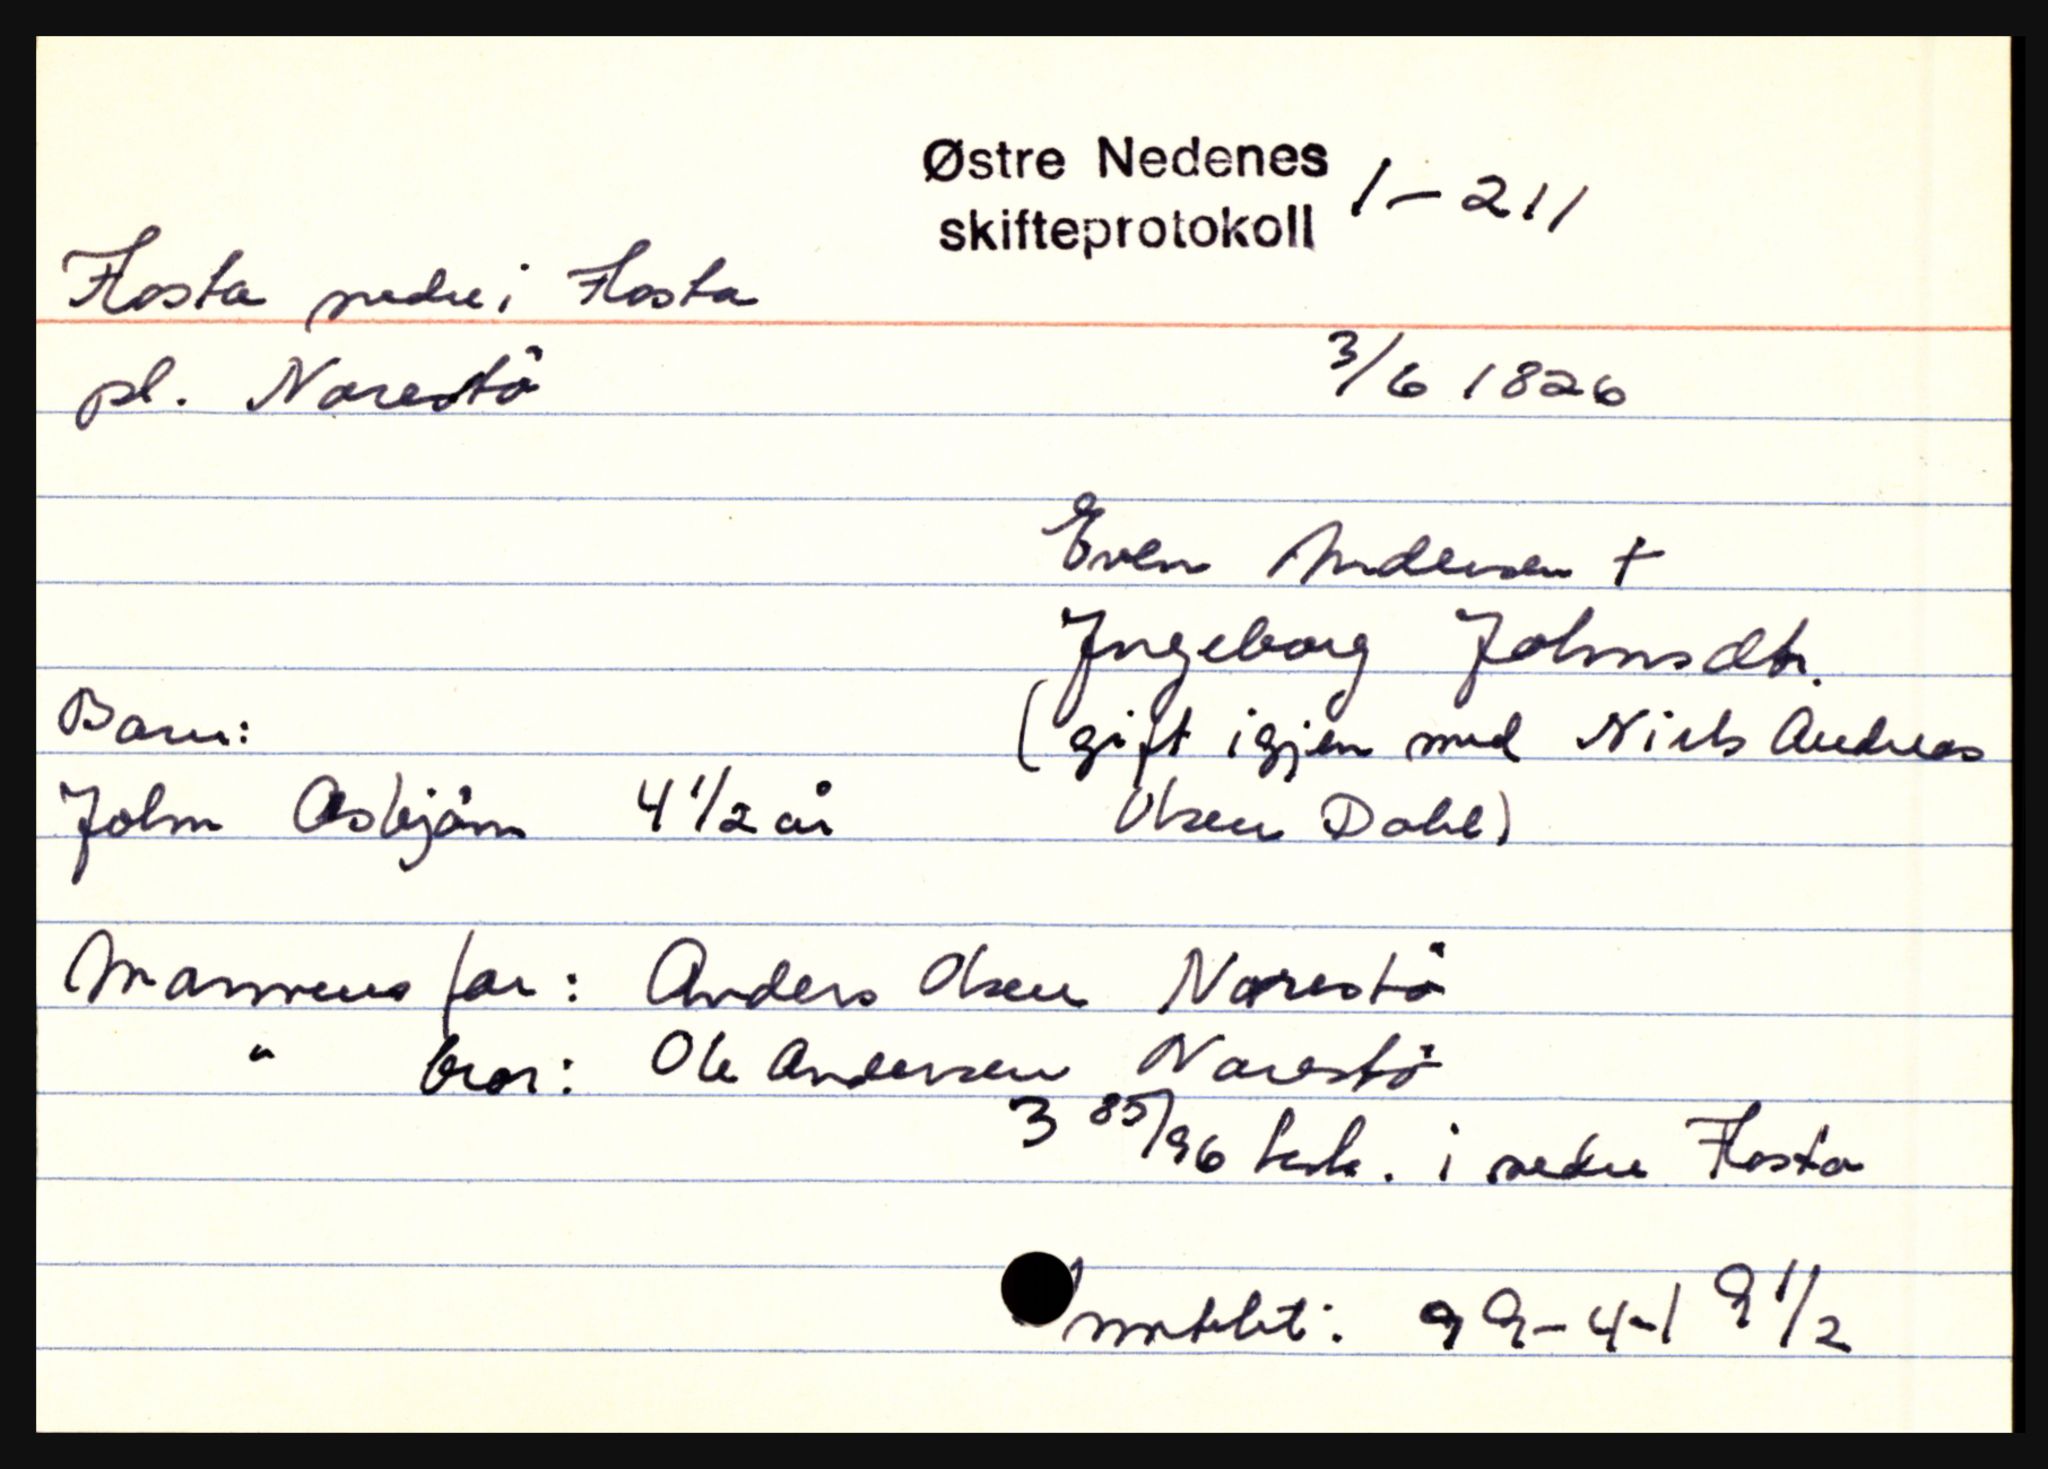 Østre Nedenes
skifteprotokoll 1-211
Flosta nedre i Flosta
pl. Narestö 3/6 1826
Even Andersen †
Ingeborg Johnsdtr.
Barn: (gift igjen med Niels Andreas
John Asbjörn 4 1/2 år Olsen Dahl)
Mannens far: Anders Olsen Narestö
" bror: Ole Andersen Narestö
3 85/96 i nedre Flosta
99-4-19 1/2